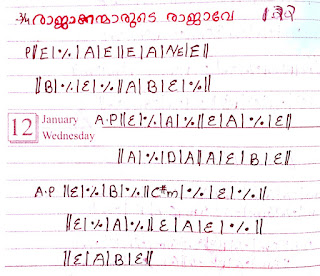 3/4 രാജാക്കന്മാരുടെ രാജാവേ
P||E|٪|A|E||E|A|NE|E||
||B|٪|E|٪||A|B|E|٪||
12 January Wednesday A.P||E|٪|A|٪||E|A|٪|E||
||A|٪|D|A||A|E|B|E||
A.P ||E|٪|B|٪||C#m|٪|E|٪||
||E|٪|A|٪||E|A|E|٪||
||E|A|B|E||